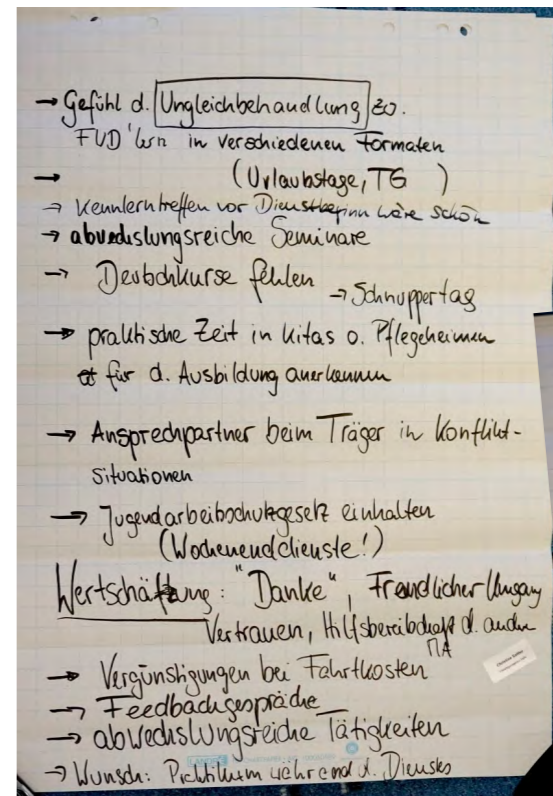 → Gefühl d. Ungleichbehandlung zo.
FUD'lern in verschiedenen Formaten
→ (Urlaubstage, TG )
→ Kennlerntreffen vor Dienstbeginn wäre schön
→ abwechslungsreiche Seminare
→ Deutschkurse fehlen
→ Schnuppertag
→ praktische Zeit in Kitas o. Pflegeheimen
für d. Ausbildung anerkennen
→ Ansprechpartner beim Träger in Konflikt-
situationen
→ Jugendarbeitschutzgesetz einhalten
(Wochenenddienste!)
Wertschätzung: "Danke", Freundlicher Umgang
Vertrauen, Hilfsbereitschaft d. andren
MA
→ Vergünstigungen bei Fahrtkosten
→ Feedbackgespräche
→ abwechslungsreiche Tätigkeiten
→ Wunsch: Praktikum während d. Dienstes